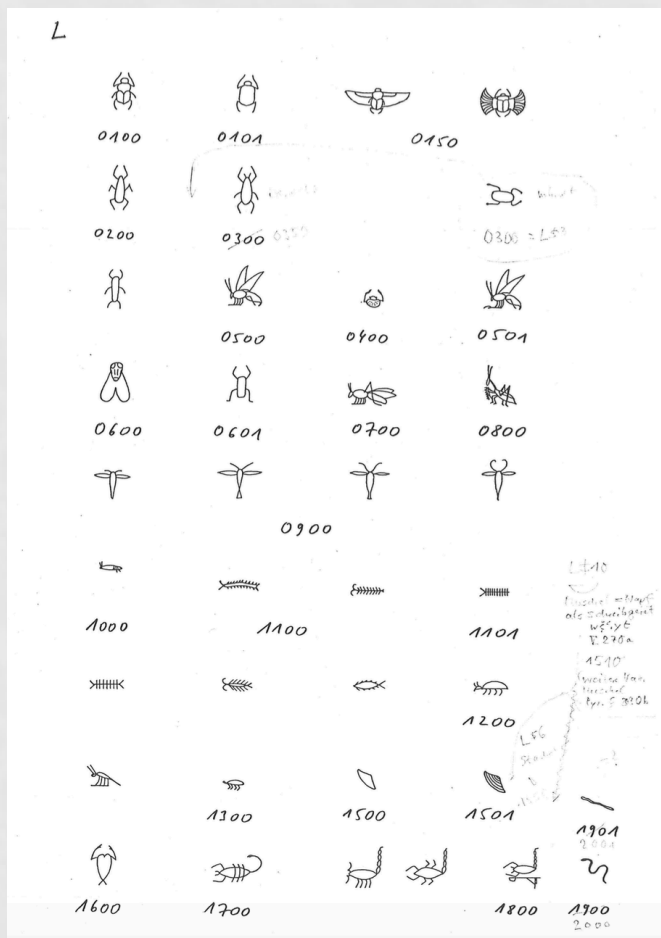 L
0100 0101 0150
0200 0300 0350
0300 = L
0500 0400 0501
0600 0601 0700 0800
0900
1000 1100 1101
L 10
als
1510
1200
L 56
1300 1500 1501 1901
2001
1600 1700 1800 1900
2000